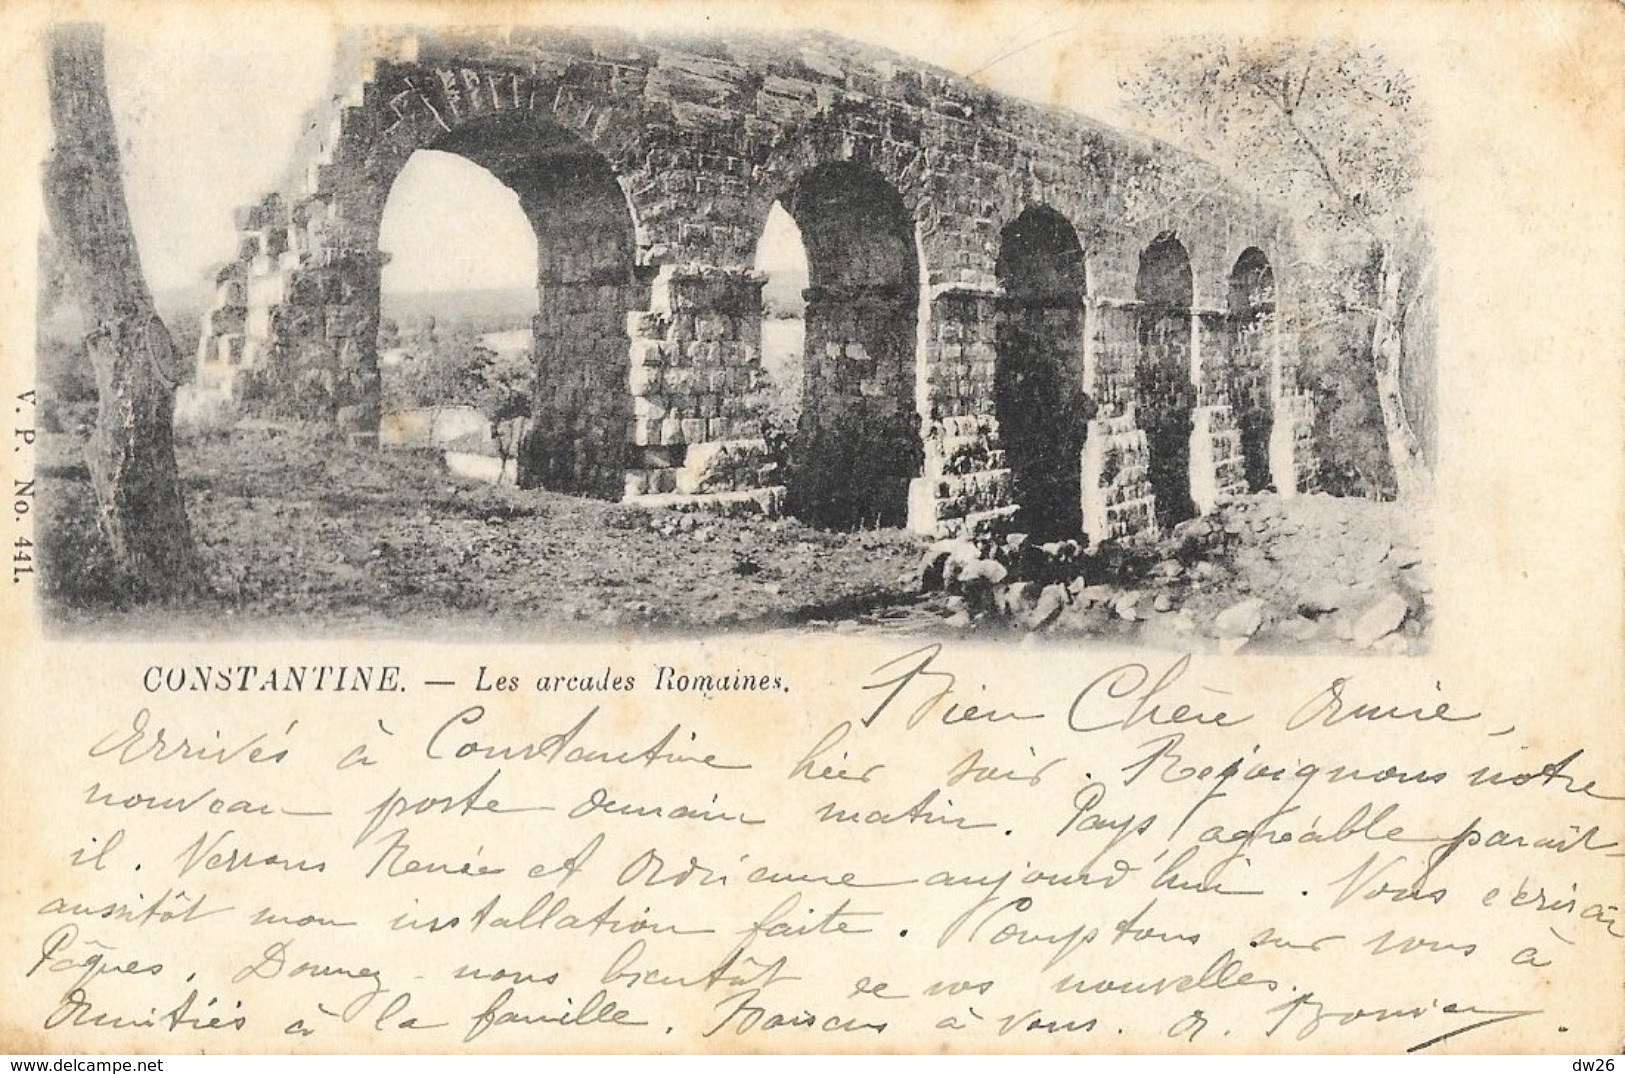 V. P. No. 441.
CONSTANTINE. — Les arcades Romaines.
Bien Chère Amie,
Arrivés à Constantine hier soir. Rejoignons notre
nouveau poste demain matin. Pays agréable paraît-
il. Verrons Renée et Adrienne aujourd'hui. Vous écrirai
aussitôt mon installation faite. Comptons sur vous à
Pâques. Donnez-nous bientôt de vos nouvelles.
Amitiés à la famille. Baisers à vous. A.
dw26